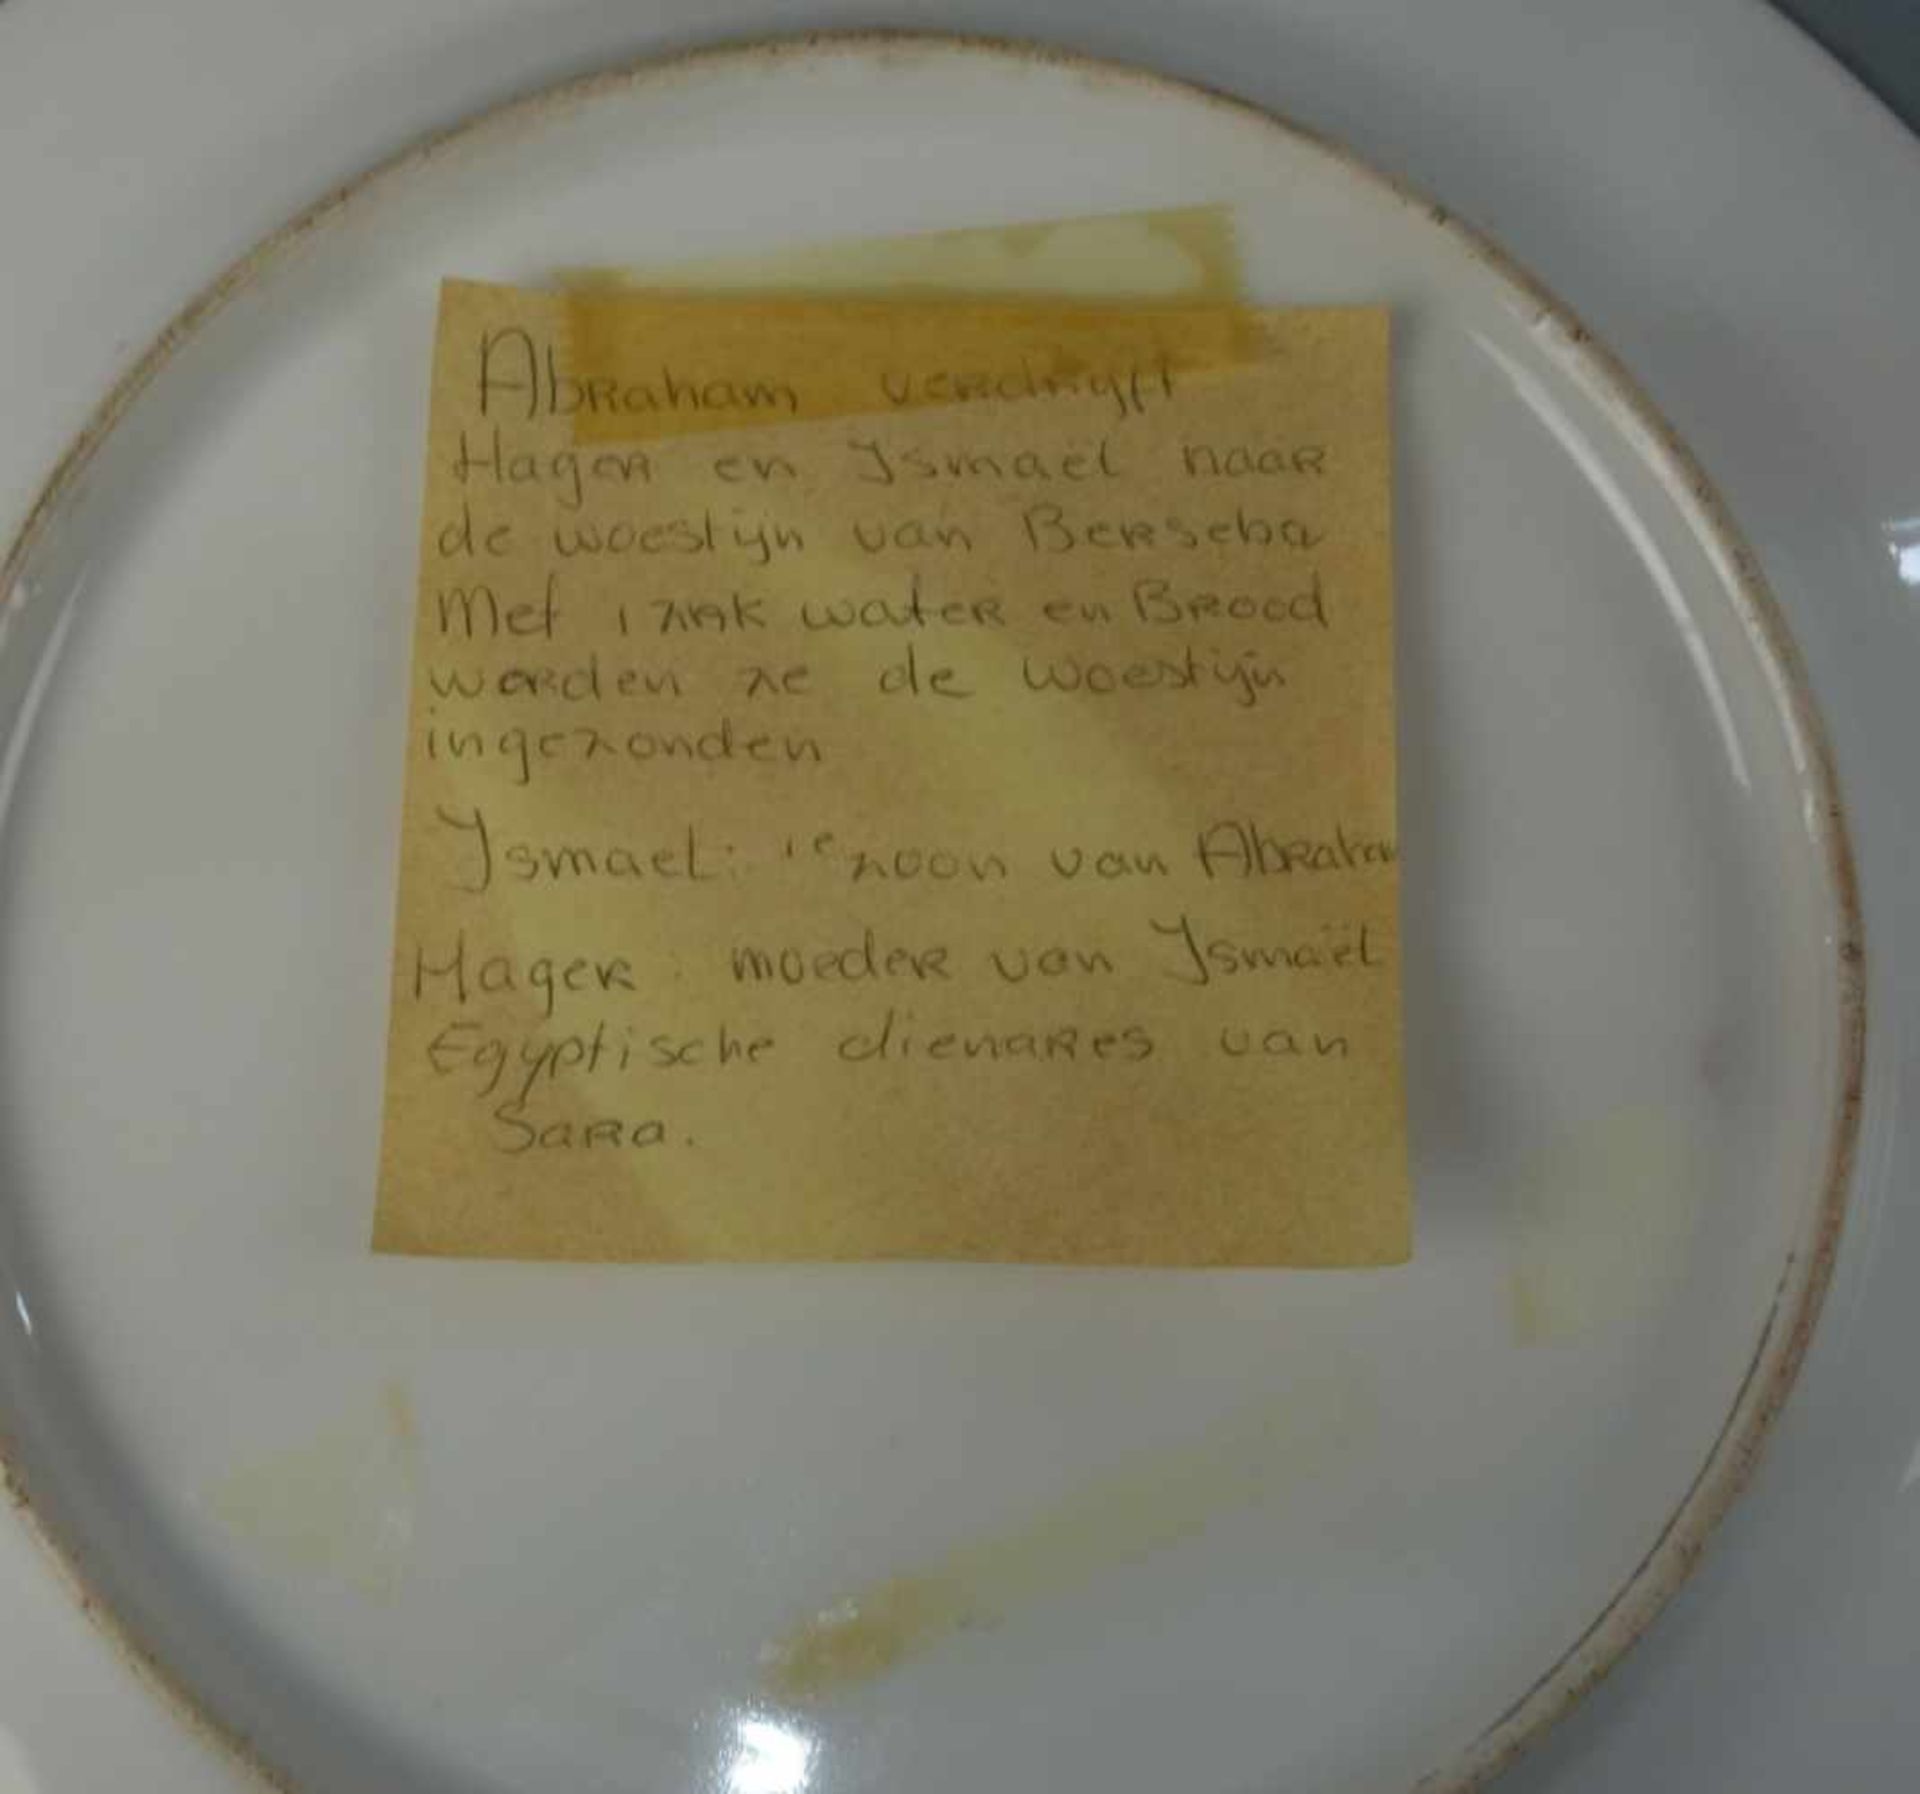 Abraham verdrijft
Hager en Ismaël naar
de woestijn van Berseba
Met 1 zak water en Brood
worden ze de woestijn
ingezonden
Ismael: 1e zoon van Abraham
Hager: moeder van Ismaël
Egyptische dienares van
Sara.